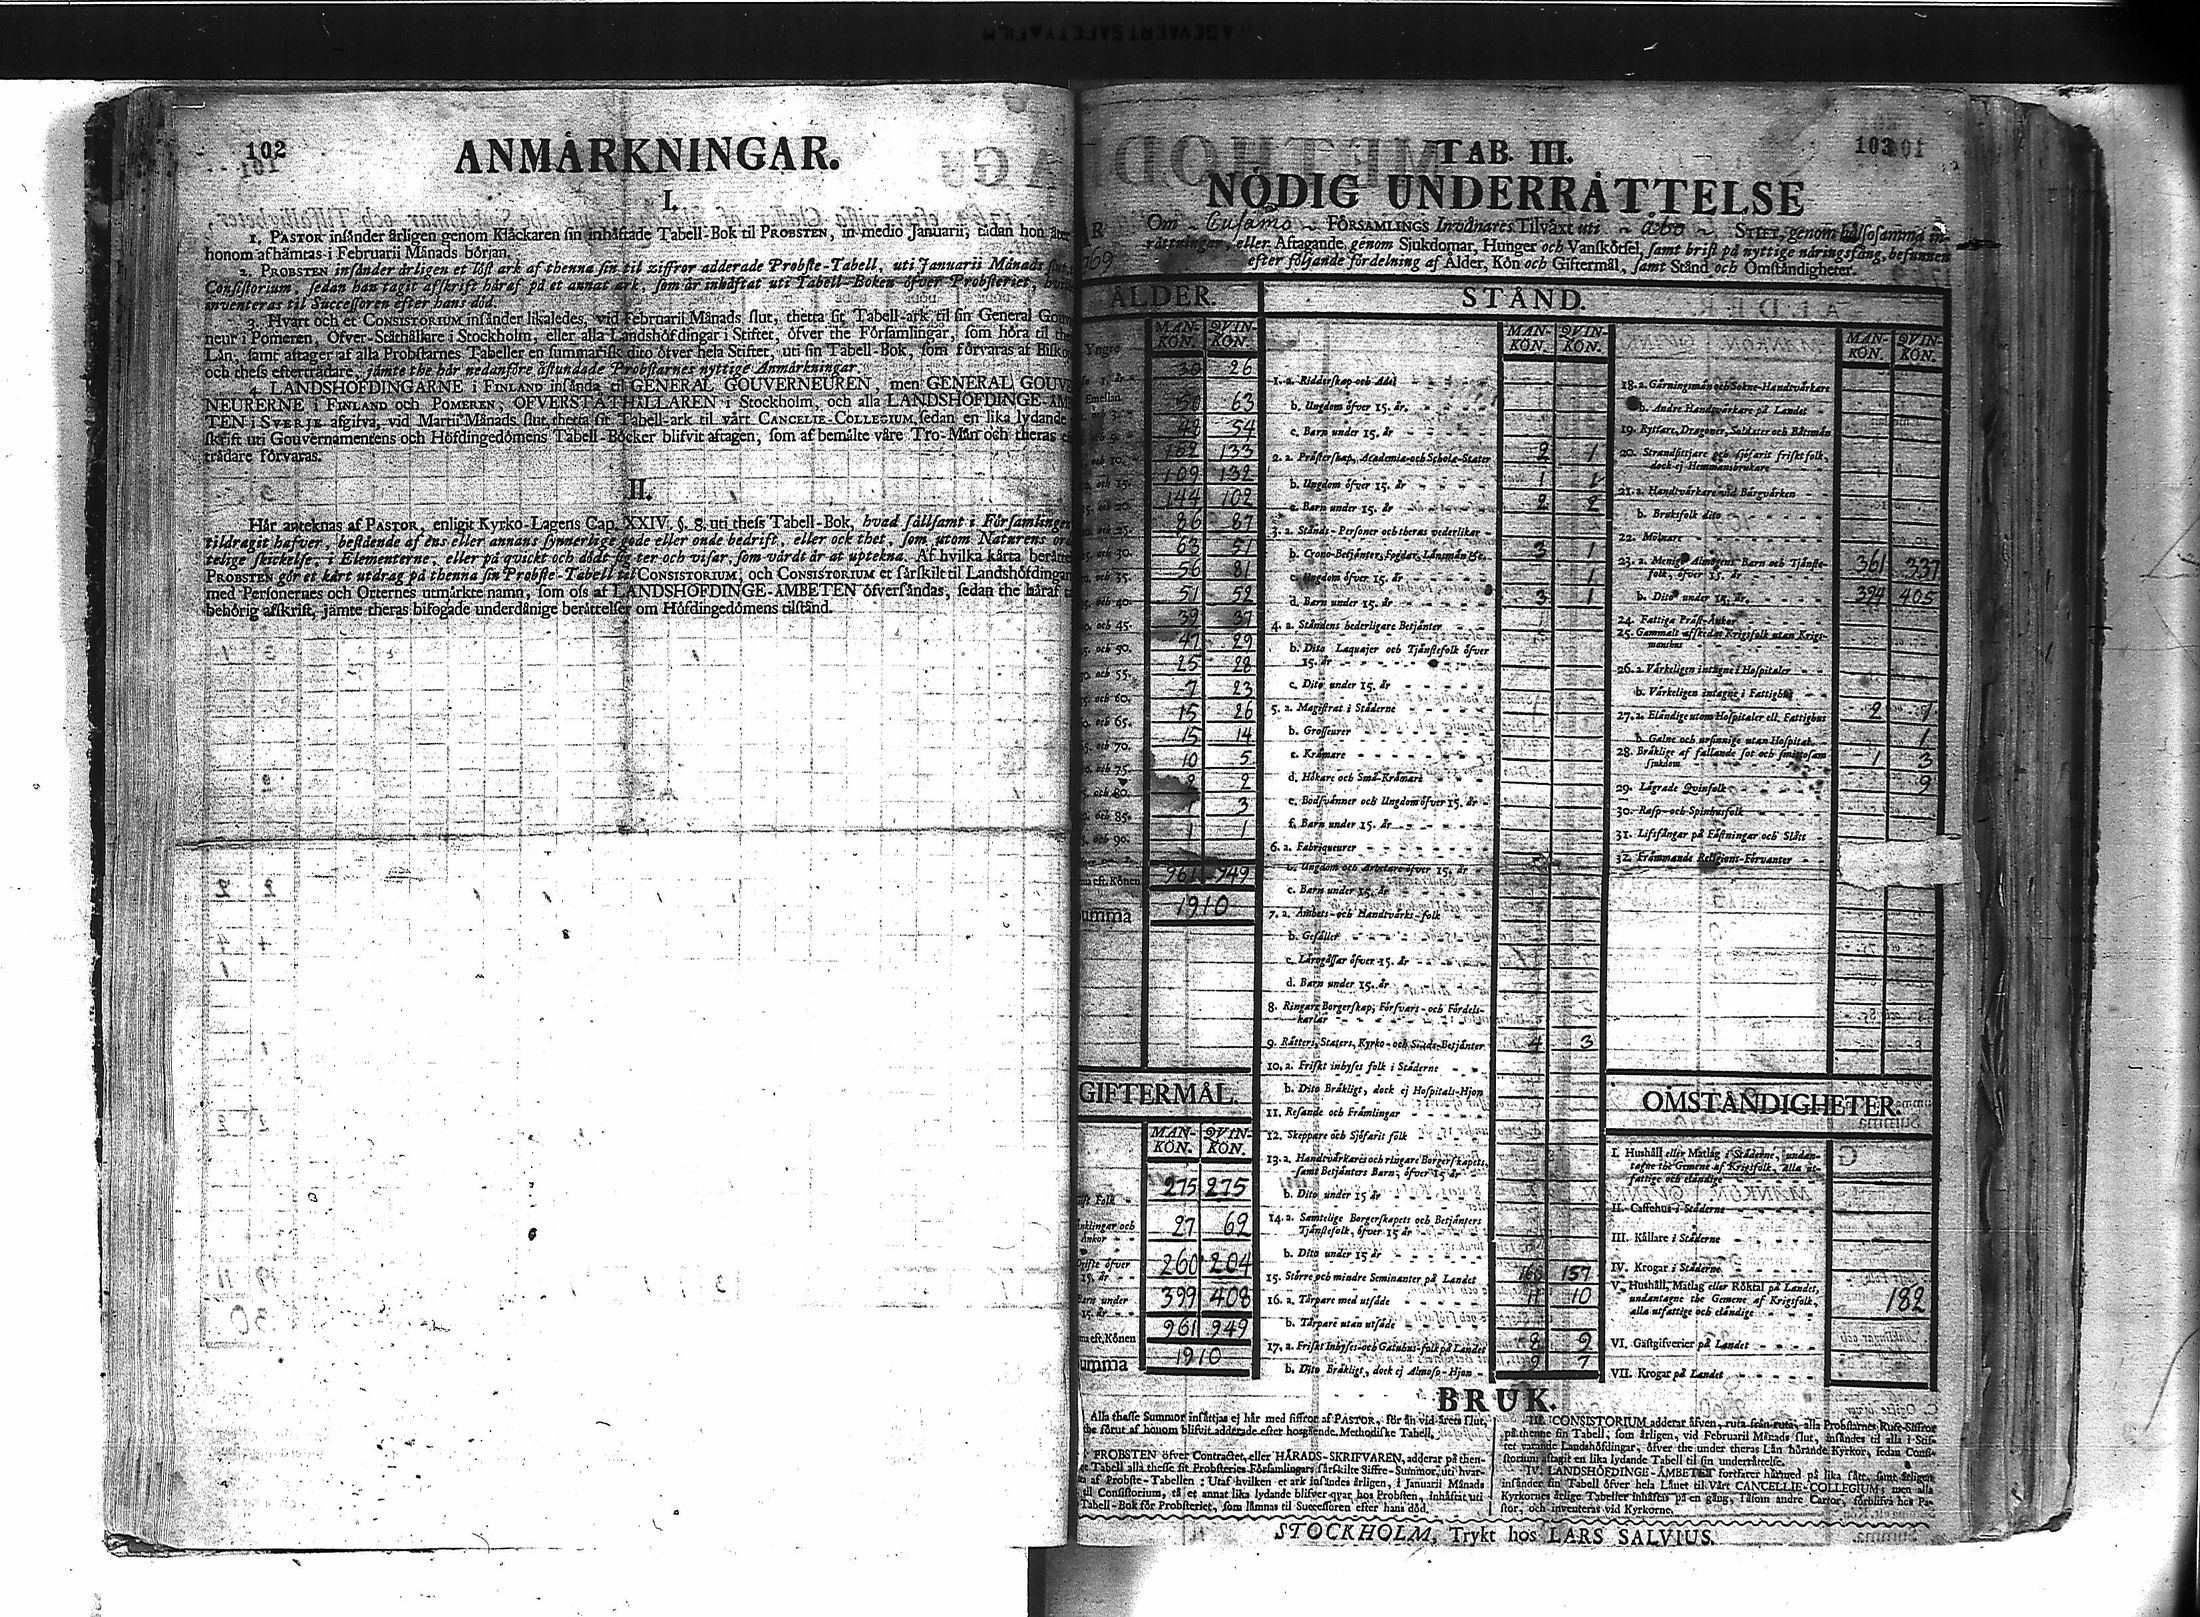 102
ANMÄRKNINGAR.
I.
1. PASTOR insänder årligen genom Klåckaren sin inhäftade Tabell-Bok til PROBSTEN, in medio Januarii, tådan hon åter
honom afhämtas i Februarii Månads början.
2. PROBSTEN insänder årligen et löst ark af thenna sin til ziffror adderade Probste-Tabell, uti Januarii Månads slut,
Consistorium, sedan han tagit afskrift häraf på et annat ark, som är inhäftat uti Tabell-Boken öfver Probsteriet,
inventeras til Successoren efter hans död.
3. Hvart och et CONSISTORIUM insänder likaledes, vid Februarii Månads slut, thetta sit Tabell-ark til sin General Gouv
neur i Pomeren, Öfver-Ståthållare i Stockholm, eller alla Landshöfdingar i Stiftet, öfver the Församlingar, som höra til
Län, samt aftager af alla Probstarnes Tabeller en summarisk dito öfver hela Stiftet, uti sin Tabell-Bok, som förvaras af Bisko
och thess efterträdare, jämte the här nedanföre åstundade Probstarnes nyttige Anmärkningar.
4. LANDSHÖFDINGARNE i FINLAND insända til GENERAL GOUVERNEUREN, men GENERAL GOUV
NEURERNE i FINLAND och POMEREN, ÖFVERSTÅTHÅLLAREN i Stockholm, och alla LANDSHÖFDINGE-ÄM
TEN i SVERJE afgifva, vid Martii Månads slut, thetta sit Tabell-ark til vårt CANCELIE-COLLEGIUM, sedan en lika lydande
skrift uti Gouvernamentens och Höfdingedömens Tabell-Böcker blifvit aftagen, som af bemälte våre Tro-Män och theras
trädare förvaras.
II.
Här anteknas af PASTOR, enligit Kyrko-Lagens Cap. XXIV. §. 8. uti thess Tabell-Bok, hvad sällsamt i Församlingen
tildragit hafver, bestående af ens eller annans synnerlige gode eller onde bedrift, eller ock thet, som utom Naturens ord
telige skickelse, i Elementerne, eller på qvickt och dödt sig ter och visar, som värdt är at uptekna. Af hvilka korta berätte
PROBSTEN gör et kort utdrag på thenna sin Probste-Tabell til CONSISTORIUM, och CONSISTORIUM et särskilt til Landshöfdingar
med Personernes och Orternes utmärkte namn, som oss af LANDSHÖFDINGE-ÄMBETEN öfversändas, sedan the häraf
behörig afskrift, jämte theras bifogade underdånige berättelser om Höfdingedömens tilstånd.
103
TAB. III.
NÖDIG UNDERRÄTTELSE
Om Cusamo FÖRSAMLINGS Invånares Tilväxt uti Åbo STIFT, genom hälsosamma in-
rättningar, eller Aftagande genom Sjukdomar, Hunger och Vanskötsel, samt brist på nyttige näringsfång, befunnen
efter följande fördelning af Ålder, Kön och Giftermål, samt Stånd och Omständigheter.
ÅLDER.
MAN-KÖN. QVIN-KÖN.
Yngre
30 26
Emellan
50 63
48 54
och 10. 162 133
och 15. 109 132
och 20. 144 102
och 25. 86 87
och 30. 63 51
och 35. 56 81
och 40. 51 52
och 45. 39 37
och 50. 47 29
och 55. 25 28
och 60. 7 23
och 65. 15 26
och 70. 15 14
och 75. 10 5
och 80. 2 2
och 85. 1 3
och 90. 1 1
eft. Könen 961 949
umma 1910
GIFTERMÅL.
MAN-KÖN. QVIN-KÖN.
Folk 275 275
nklingar och Änkor 27 62
Ogifte öfver 15. år 260 204
Barn under 15. år 399 408
eft. Könen 961 949
umma 1910
STÅND.
MAN-KÖN. QVIN-KÖN.
1. a. Ridderskap och Adel
b. Ungdom öfver 15. år.
c. Barn under 15. år
2. a. Prästerskap, Academiæ-och Scholæ-Stater 2 1
b. Ungdom öfver 15. år 1 1
c. Barn under 15. år 2 2
3. a. Stånds-Personer och theras vederlikar
b. Crono-Betjänter, Fogdar, Länsmän &c. 3 1
c. Ungdom öfver 15. år 1
d. Barn under 15. år 3 1
4. a. Ståndens hederligare Betjänter
b. Dito Laquajer och Tjänstefolk öfver
15. år
c. Dito under 15. år
5. a. Magistrat i Städerne
b. Grosseurer
c. Krämare
d. Hökare och Små-Krämare
e. Bodsvänner och Ungdom öfver 15. år
f. Barn under 15. år
6. a. Fabriqueurer
b. Ungdom och Arbetare öfver 15. år
c. Barn under 15. år
7. a. Ämbets-och Handtvärks-folk
b. Gesäller
c. Lärogåssar öfver 15. år
d. Barn under 15. år
8. Ringare Borgerskap, Försvars-och Fördels-
karlar
9. Rätters, Staters, Kyrko-och Stads-Betjänter 4 3
10. a. Friskt inhyses folk i Städerne
b. Dito Bräkligt, dock ej Hospitals-Hjon
11. Resande och Främlingar
12. Skeppare och Sjöfarit folk
13. a. Handtvärkares och ringare Borgerskapets,
samt Betjänters Barn, öfver 15 år
b. Dito under 15 år
14. a. Samtelige Borgerskapets och Betjänters
Tjänstefolk, öfver 15 år
b. Dito under 15 år
15. Större och mindre Hemmanter på Landet 160 157
16. a. Torpare med utsäde 11 10
b. Torpare utan utsäde
17. a. Friskt Inhyses-och Gatuhus-folk på Landet 8 9
b. Dito Bräkligt, dock ej Almoso-Hjon 9 7
MAN-KÖN. QVIN-KÖN.
18. a. Gärningsmän och Sokne-Handtvärkare
b. Andre Handtvärkare på Landet
19. Ryttare, Dragoner, Soldater och Båtsmän
20. Strandsittjare och sjöfarit friskt folk,
dock ej Hemmansbrukare
21. a. Handtvärkare vid Bärgvärken
b. Bruksfolk dito
22. Mölnare
23. a. Menige Allmogens Barn och Tjänste-
folk, öfver 15. år 361 337
b. Dito under 15. år. 394 405
24. Fattiga Präst-Änkor
25. Gammalt afskedat Krigsfolk utan Krigs-
manshus
26. a. Värkeligen intagne i Hospitaler
b. Värkeligen intagne i Fattighus
27. a. Eländige utom Hospitaler ell. Fattighus 2 1
b. Galne och ursinnige utan Hospital 1
28. Bräklige af fallande sot och smittosam
sjukdom 1 3
29. Lägrade Qvinfolk 9
30. Rasp-och Spinhusfolk
31. Lifsfångar på Fästningar och Slått
32. Främmande Religions-Förvanter
OMSTÄNDIGHETER.
I. Hushåll eller Matlag i Städerne, undan-
tagne the Gemene af Krigsfolk, alla ut-
fattige och eländige
II. Caffehus i Städerne
III. Källare i Städerne
IV. Krogar i Städerne
V. Hushåll, Matlag eller Röktal på Landet,
undantagne the Gemene af Krigsfolk,
alla utfattige och eländige 182
VI. Gästgifverier på Landet
VII. Krogar på Landet
BRUK.
Alla thesse Summor insättjas ej här med siffror af PASTOR, för än vid årets slut,
the förut af honom blifvit adderade efter hosgående Methodiske Tabell.
PROBSTEN öfver Contractet, eller HÄRADS-SKRIFVAREN, adderar på then-
Tabell alla thesse sit Probsteries Församlingars särskilte Siffre-Summor, uti hvar-
af Probste-Tabellen: Utaf hvilken et ark insändes årligen, i Januarii Månads
til Consistorium, tå et annat lika lydande blifver qvar hos Probsten, inhäftat uti
Tabell-Bok för Probsteriet, som lämnas til Successoren efter hans död.
III. CONSISTORIUM adderar äfven, ruta från ruta, alla Probstarnes Rute-Siffror
på thenne sin Tabell, som årligen, vid Februarii Månads slut, insändes til alla i Stif-
tet varande Landshöfdingar, öfver the under theras Län hörande Kyrkor, sedan Consi-
storium aftagit en lika lydande Tabell til sin underrättelse.
IV. LANDSHÖFDINGE-ÄMBETET fortfarer härmed på lika sätt, samt årligen
insänder sin Tabell öfver hela Länet til Vårt CANCELLIE-COLLEGIUM; men alla
Kyrkornes årlige Tabeller inhäftas på en gång, såsom andre Cartor, förblifva hos Pa-
stor, och inventeras vid Kyrkorne.
STOCKHOLM, Trykt hos LARS SALVIUS.